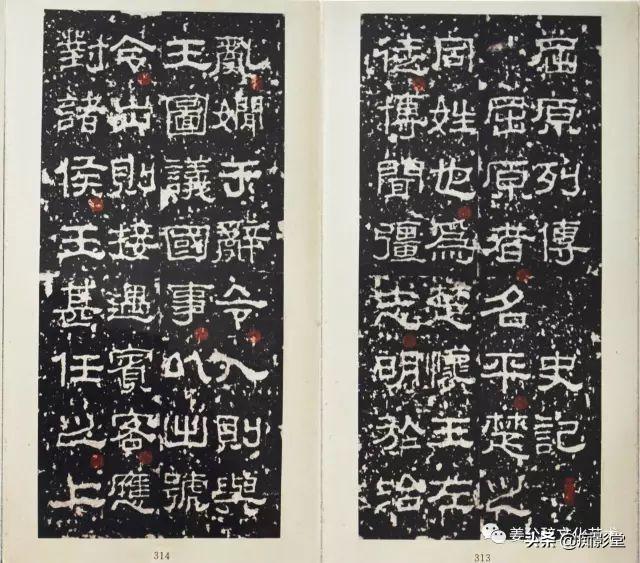 屈原列傳 史記
屈原者名平楚之
同姓也為楚懷王左
徒博聞彊志明於治
313
亂嫺于辭令入則與
王圖議國事以出號
令出則接遇賓客應
對諸侯王甚任之上
314
姜公醉文化艺术
头条 @痴影堂